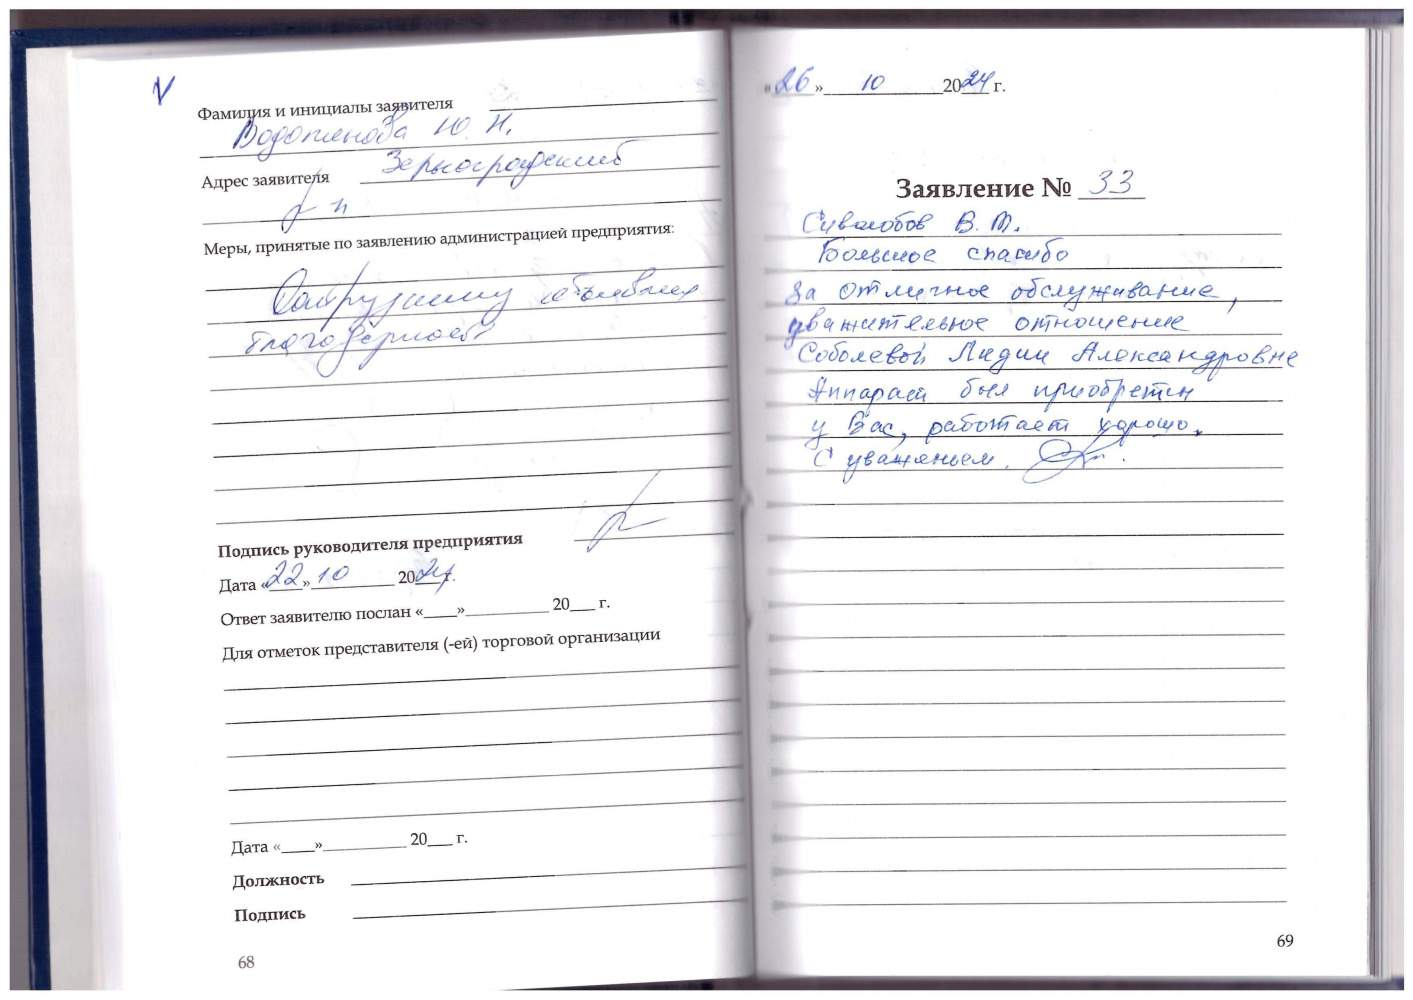 V
Фамилия и инициалы заявителя
Водопянова Ю. Н.
Адрес заявителя Зерноградский
р н
Меры, принятые по заявлению администрацией предприятия:
Сотруднику объявлена
благодарность
Подпись руководителя предприятия
Дата «22» 10 2024 г.
Ответ заявителю послан «____»__________ 20___ г.
Для отметок представителя (-ей) торговой организации
Дата «____»__________ 20___ г.
Должность
Подпись
68
«26» 10 2024 г.
Заявление № 33
Сиволобов В. М.
Большое спасибо
за отличное обслуживание,
уважительное отношение
Соболевой Лидии Александровне
Аппарат был приобретен
у Вас, работает хорошо.
С уваженьем.
69